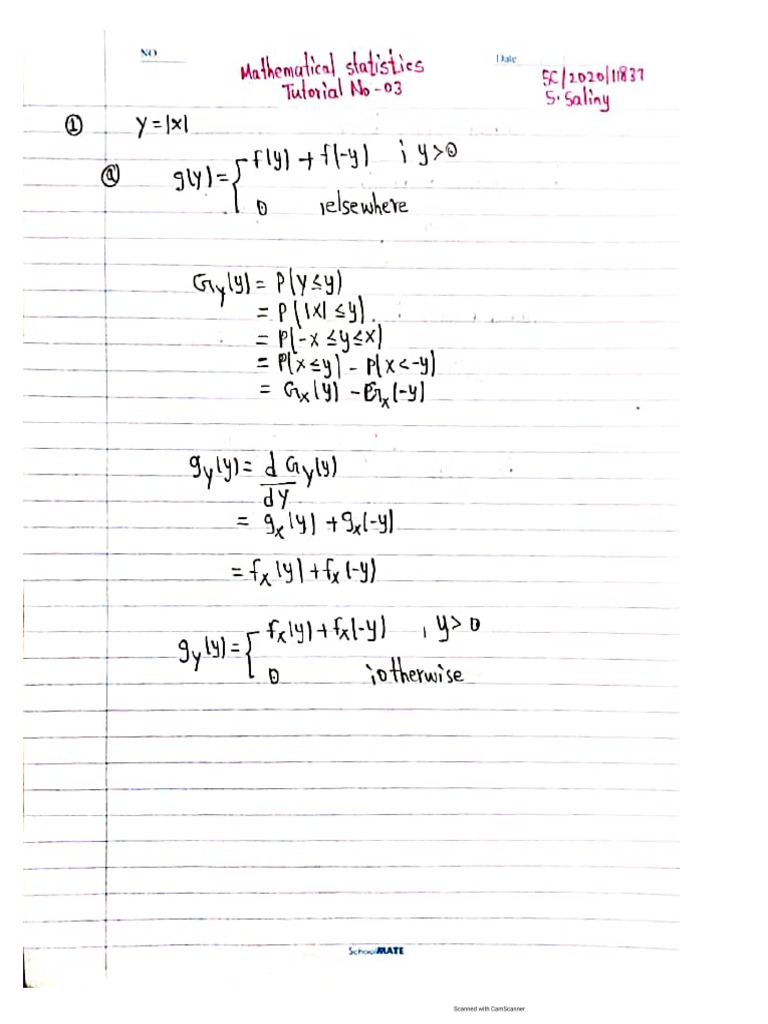 NO
Date
Mathematical statistics
Tutorial No-03
SC/2020/11837
S. Saliny
① Y=|X|
ⓐ g(y) = { f(y) + f(-y) ; y>0
0 ;elsewhere
G_Y(y) = P(Y≤y)
= P(|X| ≤y)
= P(-x ≤y≤x)
= P(x≤y) - P(x<-y)
= G_x(y) - G_x(-y)
g_Y(y) = d G_Y(y)
dy
= g_x(y) + g_x(-y)
= f_x(y) + f_x(-y)
g_Y(y) = { f_x(y) + f_x(-y) , y>0
0 ;otherwise
SchoolMATE
Scanned with CamScanner